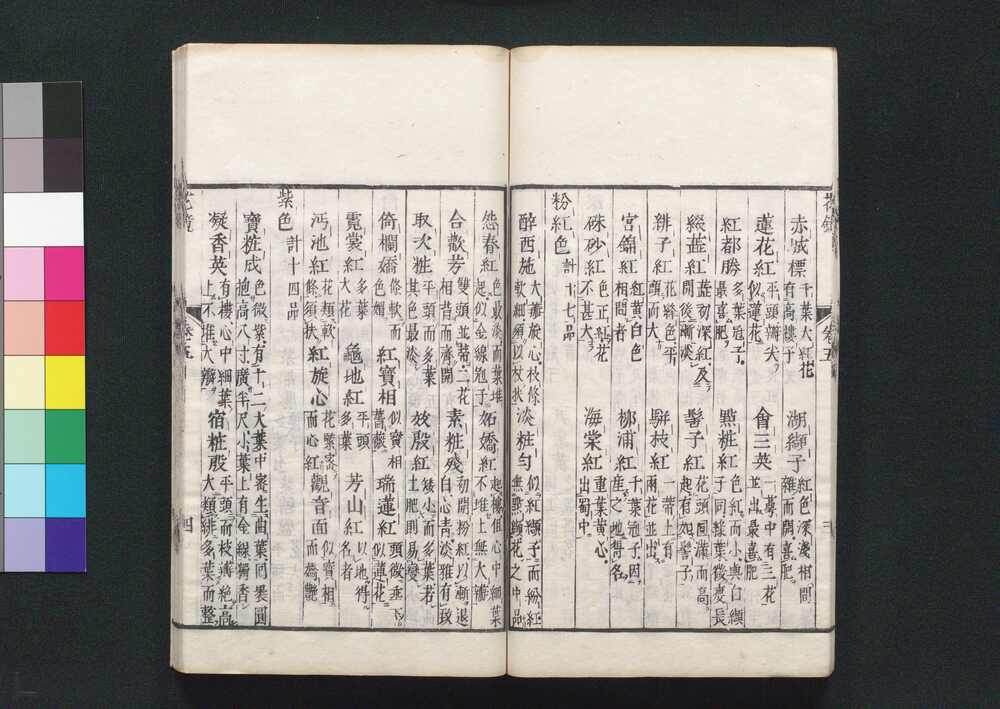 赤城標 千葉大紅花有高樓子
湖纈子 紅色深淺相間雜而開喜肥
蓮花紅 平頭瓣尖似蓮花
會三英 一萼中有三花並出最喜肥
紅都勝 多葉冠子最喜肥
點粧紅 色紅而小與白纈子同綠葉微瘦長
綴蕋紅 蕋初深紅及開後漸淡
髻子紅 花頭圓滿而高起有如髻子
緋子紅 花絳色平頭而大
駢枝紅 一蒂上有兩花並出
宮錦紅 紅黄白色相間者
柳浦紅 千葉冠子因産之地得名
硃砂紅 色正紅花不甚大
海棠紅 重葉黄心出蜀中
粉紅色 計十七品
醉西施 大瓣旋心枝條軟細須以杖扶
淡粧勻 似紅纈子而粉紅無點纈花之中品
怨春紅 色最淡而葉堆起似金線冠子
妬嬌紅 起樓但心中細葉不堆上無大瓣
合歡芳 雙頭並蒂二花相背而齊開
素粧殘 初開粉紅以漸退白心青淡雅有致
取次粧 平頭而多葉其色最淡
效殷紅 矮小而多葉若土肥則易變
倚欄嬌 條軟而色媚
紅寶相 似寶相薔薇
瑞蓮紅 頭微垂下似蓮花
霓裳紅 多葉大花
龜地紅 平頭多葉
芳山紅 以地得名者
沔池紅 花類軟條須扶
紅旋心 花緊密而心紅
觀音面 似寶相而嬌艷
紫色 計十四品
寶粧成 色微紫有十二大葉中密生曲葉囘裹圓抱高八寸廣半尺小葉上有金線獨香
凝香英 有樓心中細葉上不堆大瓣
宿粧殷 平頭而枝瓣絶高大類緋多葉而整
花鏡
卷五
四